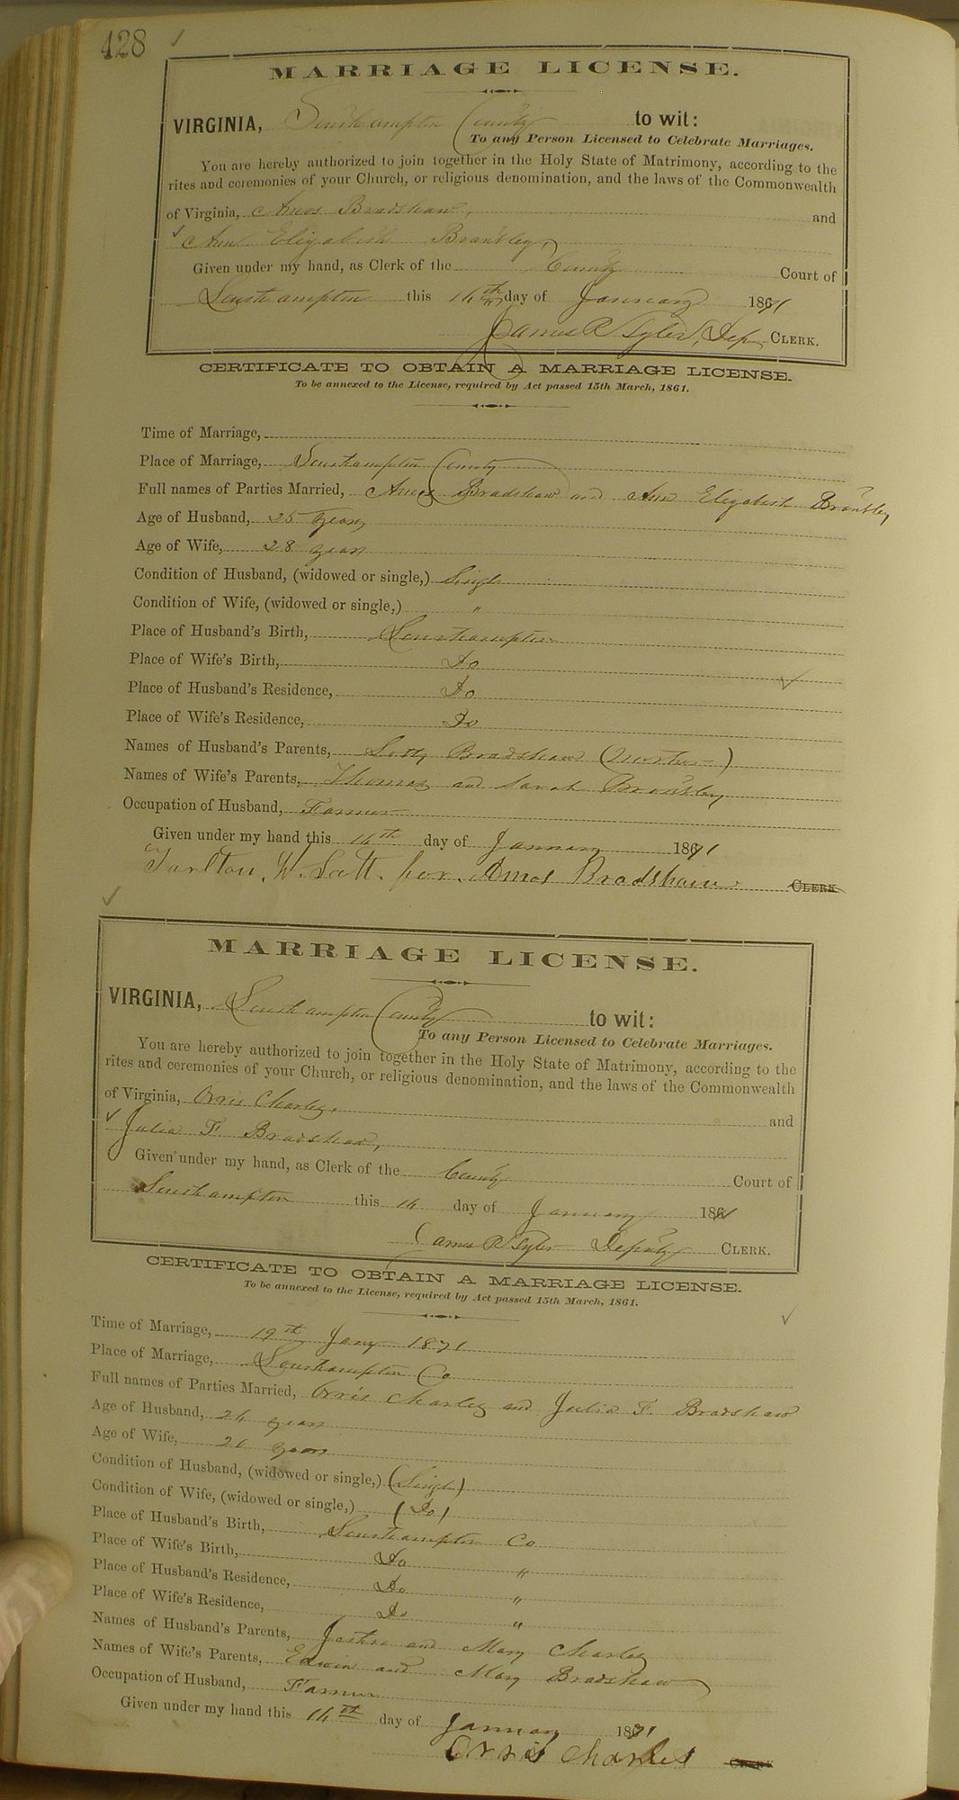 428
MARRIAGE LICENSE.
VIRGINIA, Southampton County to wit:
To any Person Licensed to Celebrate Marriages.
You are hereby authorized to join together in the Holy State of Matrimony, according to the
rites and ceremonies of your Church, or religious denomination, and the laws of the Commonwealth
of Virginia, Amos Bradshaw, and
Ann Elizabeth Brantley,
Given under my hand, as Clerk of the County Court of
Southampton this 16th day of January 1871
James R Tyler, Dep CLERK.
CERTIFICATE TO OBTAIN A MARRIAGE LICENSE.
To be annexed to the License, required by Act passed 15th March, 1861.
Time of Marriage,
Place of Marriage, Southampton County
Full names of Parties Married, Amos Bradshaw and Ann Elizabeth Brantley
Age of Husband, 25 years
Age of Wife, 28 years
Condition of Husband, (widowed or single,) Single
Condition of Wife, (widowed or single,) "
Place of Husband's Birth, Southampton
Place of Wife's Birth, Do
Place of Husband's Residence, Do
Place of Wife's Residence, Do
Names of Husband's Parents, Bradshaw (Mother)
Names of Wife's Parents, Thomas and Sarah Brantley
Occupation of Husband, Farmer
Given under my hand this 16th day of January 1871
Tarlton. W. Scott. for. Amos Bradshaw. CLERK
MARRIAGE LICENSE.
VIRGINIA, Southampton County to wit:
To any Person Licensed to Celebrate Marriages.
You are hereby authorized to join together in the Holy State of Matrimony, according to the
rites and ceremonies of your Church, or religious denomination, and the laws of the Commonwealth
of Virginia, Orris Charley, and
Julia F. Bradshaw,
Given under my hand, as Clerk of the County Court of
Southampton this 16 day of January 1871
James R Tyler Deputy CLERK.
CERTIFICATE TO OBTAIN A MARRIAGE LICENSE.
To be annexed to the License, required by Act passed 15th March, 1861.
Time of Marriage, 19th Jany 1871
Place of Marriage, Southampton Co
Full names of Parties Married, Orris Charley and Julia F. Bradshaw
Age of Husband, 24 years
Age of Wife, years
Condition of Husband, (widowed or single,) (Single)
Condition of Wife, (widowed or single,) (Do)
Place of Husband's Birth, Southampton Co
Place of Wife's Birth, Do "
Place of Husband's Residence, Do "
Place of Wife's Residence, Do "
Names of Husband's Parents, and Mary Charley
Names of Wife's Parents, Edwin and Mary Bradshaw
Occupation of Husband, Farmer
Given under my hand this 16th day of January 1871
Orris Charles CLERK